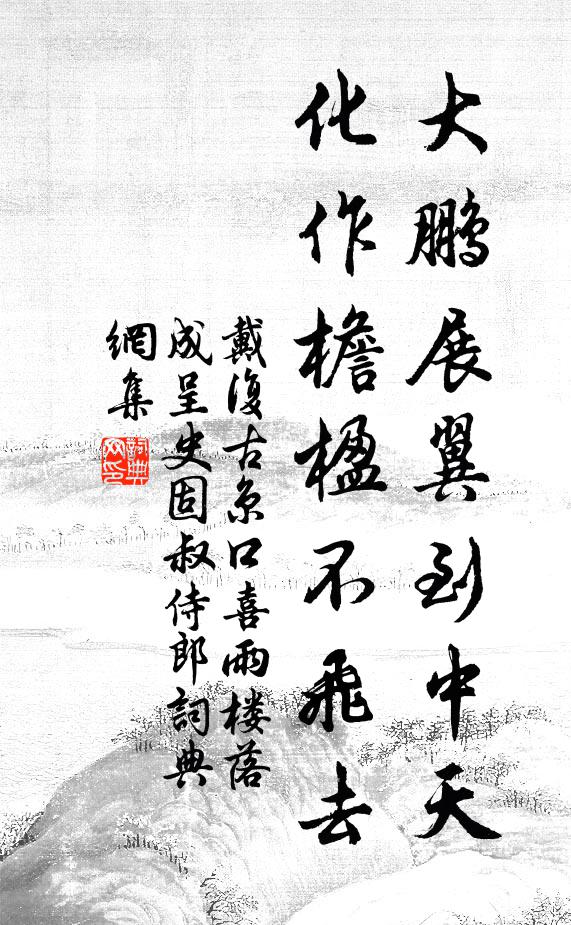 大鹏展翼到中天
化作檐楹不飛去
戴復古京口喜雨楼落
成呈史固叔侍郎詞典
網集
詞典网印